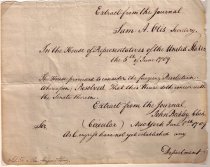 Extract from the Journal
Sam A. Otis Secretary.
In the House of Representatives of the United States
the 5th of June 1789
The House proceeded to consider the foregoing Resolution
Whereupon Resolved that this House do concur with
the Senate therein
Extract from the Journal,
John Beckley Clerk
Sir (Circular) New York
As Congress have not yet established any
Department